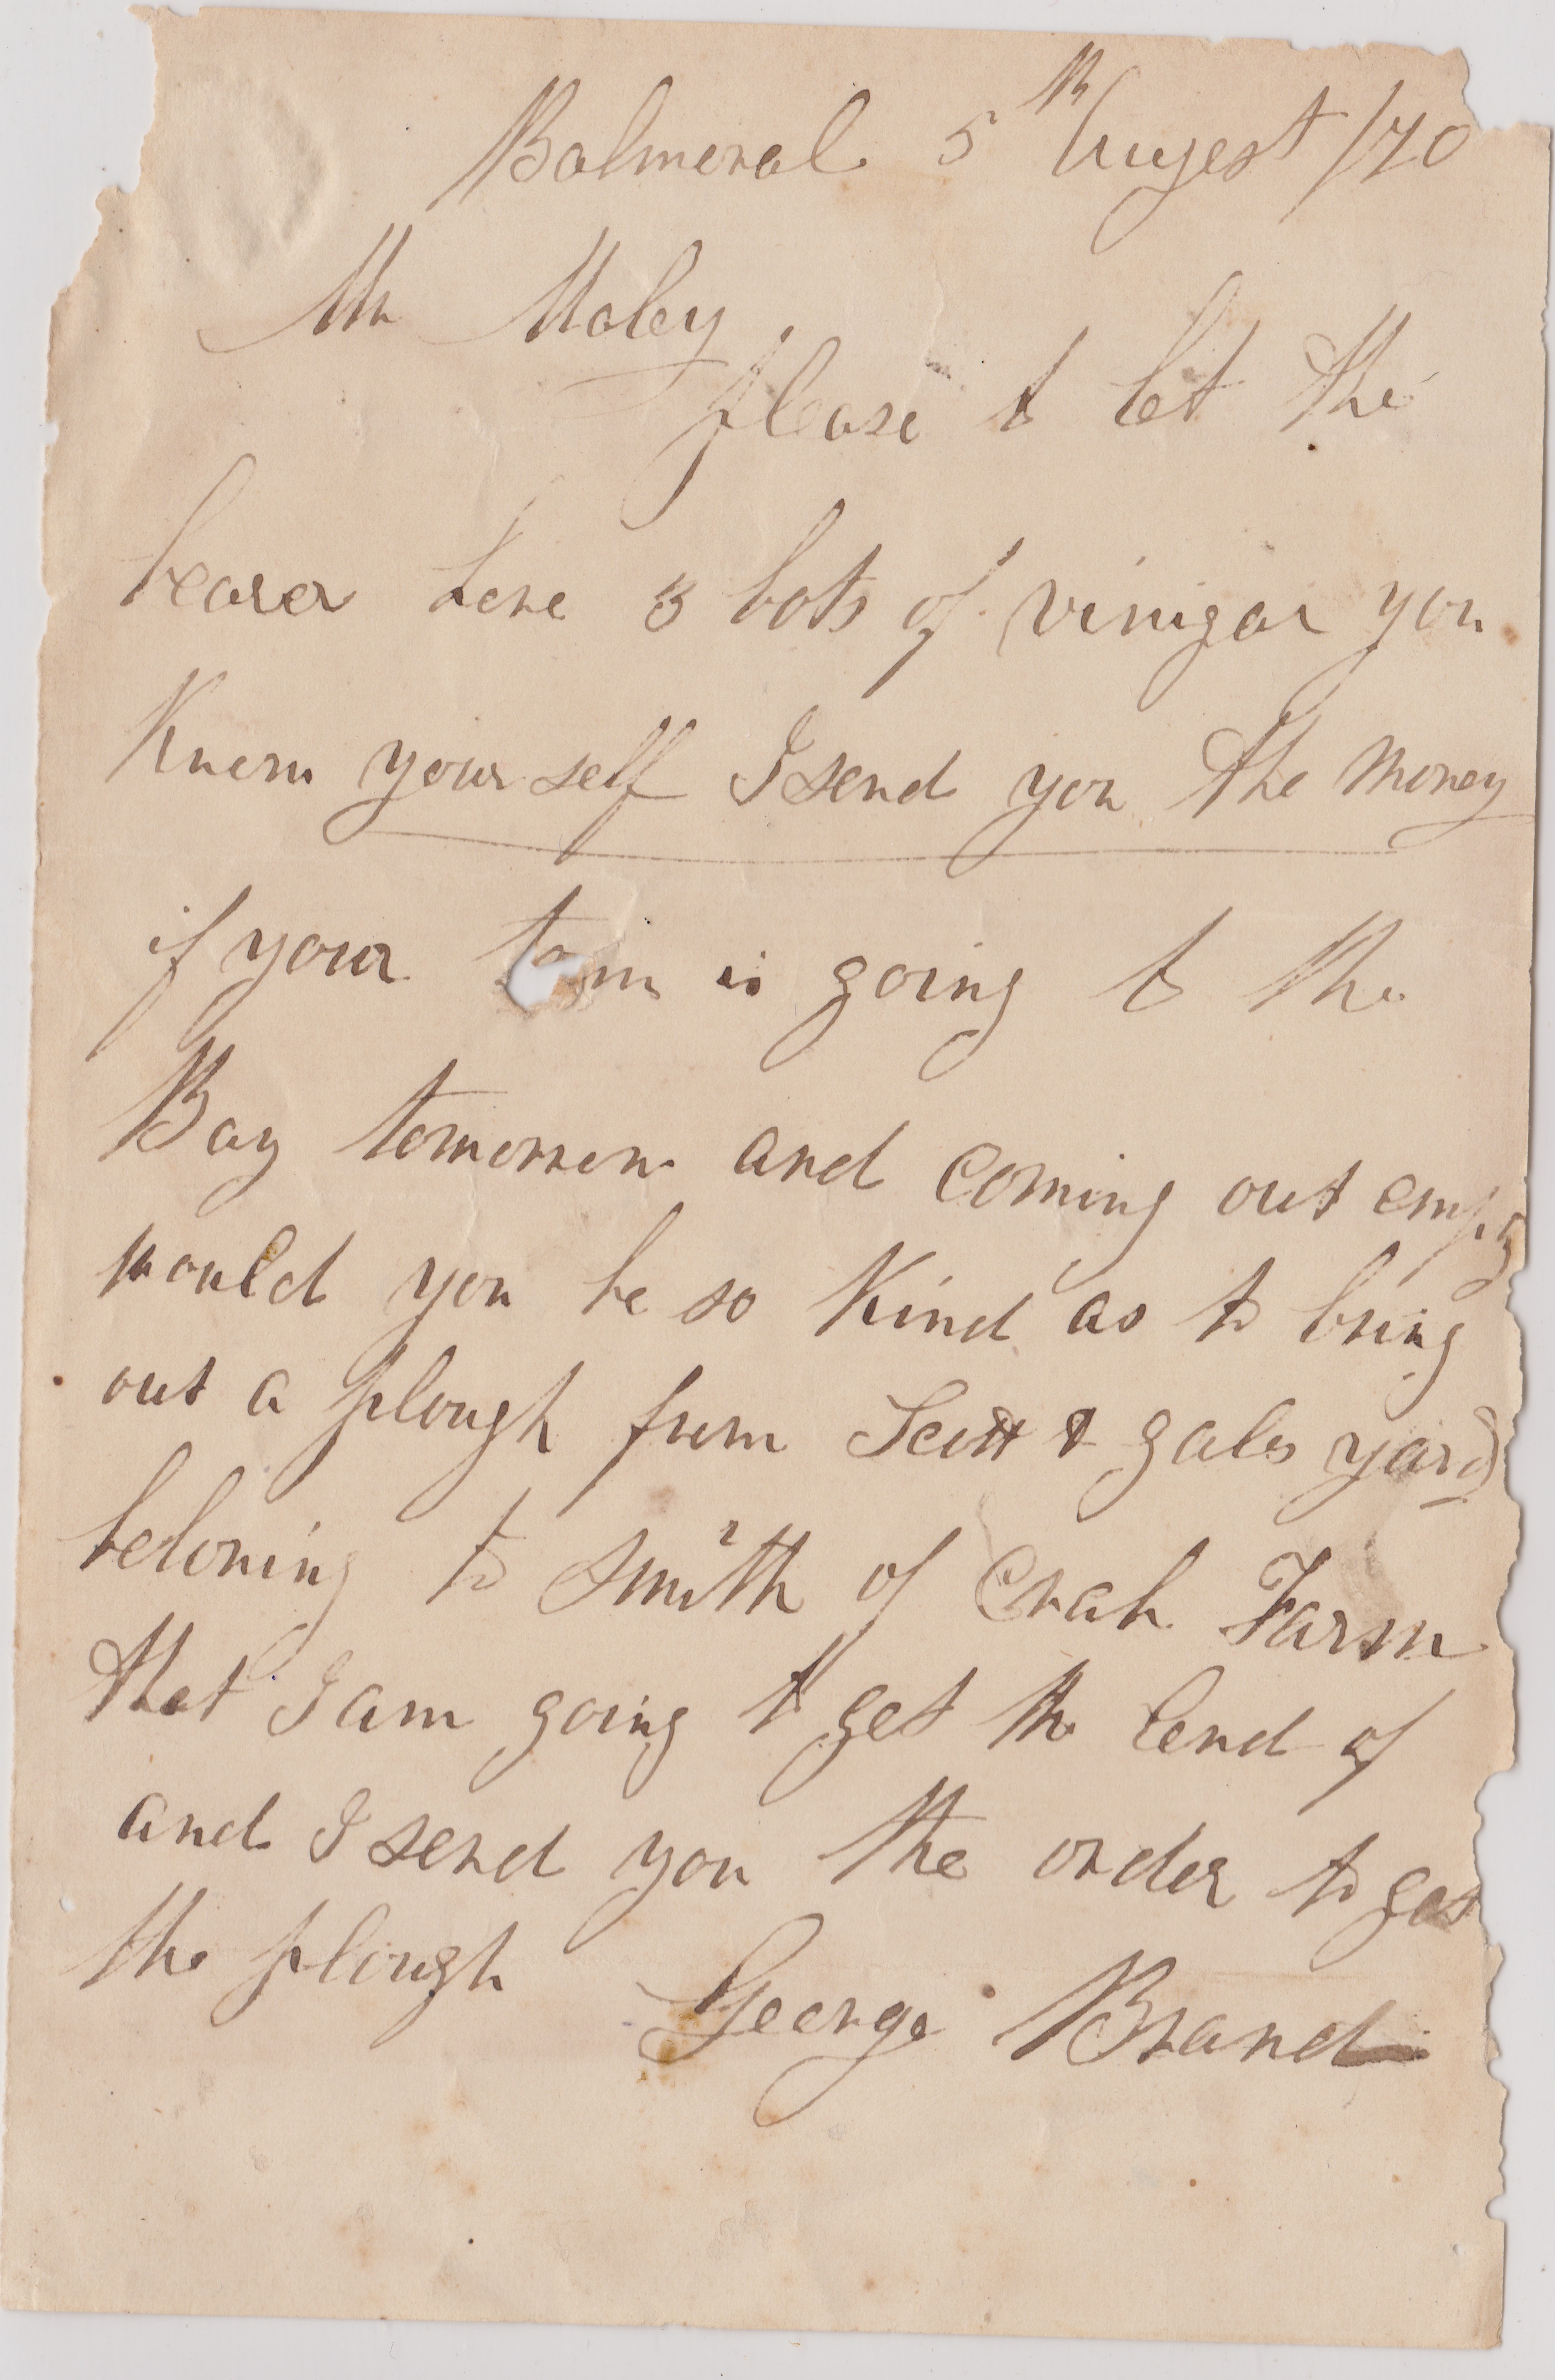 Balmeral 5th Augest /70
Mr Maley
please to let the
bearer have 3 bots of vinigar you
Know your self I send you the money
if your is going to the
Bay tomorrow and Coming out empty
would you be so Kind as to bring
out a plough from Scott & gales yard
beloning to Smith of Crah Farm
that I am going to get the lend of
and I send you the order to get
the plough George Brand